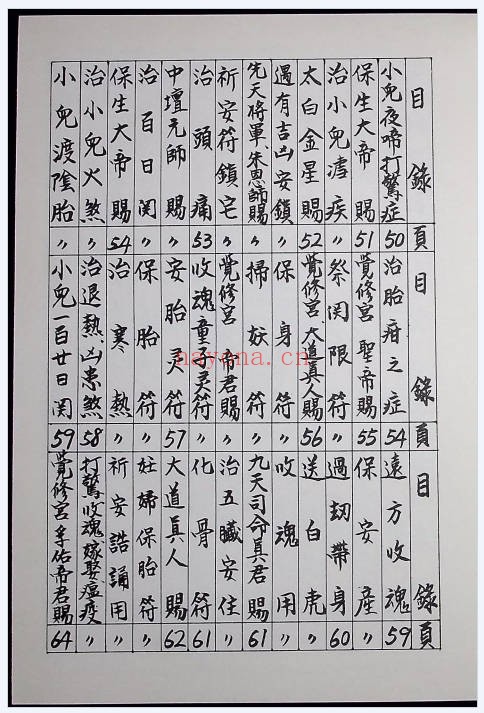 目錄 頁
小兒夜啼打驚症 50
保生大帝賜 51
治小兒疾 〃
太白金星賜 52
遇有吉凶安鎮 〃
先天將軍、朱恩師賜 〃
祈安符鎮宅 〃
治頭痛 53
中壇元帥賜 〃
治百日関 〃
保生大帝賜 54
治小兒火煞 〃
小兒渡陰胎 〃
目錄 頁
治胎疳之症 54
覺修宮聖帝賜 55
祭関限符 〃
覺修宮、大道真人賜 56
保身符 〃
掃妖符 〃
覺修宮帝君賜 〃
收魂童子灵符 〃
安胎灵符 57
保胎符 〃
治寒熱 〃
治退熱、凶患煞 58
小兒一百廿日関 59
目錄 頁
遠方收魂 59
保安產 〃
過劫帶身 60
送白虎 〃
收魂用 〃
九天司命真君賜 61
治五臟安住 〃
化骨符 61
大道真人賜 62
妊婦保胎符 〃
祈安誥誦用 〃
打驚收魂嫁娶瘟疫 〃
覺修宮孚佑帝君賜 64
nayona.cn